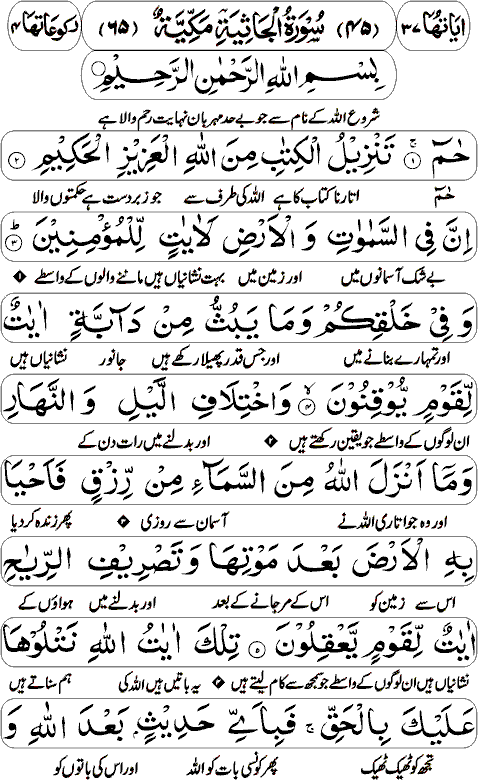 اٰیَاتُهَا ۳۷ (۴۵) سُوْرَةُ الْجَاثِيَةِ مَكِّيَّةٌ (۶۵) رُكُوْعَاتُهَا ۴
بِسْمِ اللّٰهِ الرَّحْمٰنِ الرَّحِيْمِ
شروع اللہ کے نام سے جو بے حد مہربان نہایت رحم والا ہے
حٰمٓ ۚ‏﴿۱﴾ تَنْزِيْلُ الْكِتٰبِ مِنَ اللّٰهِ الْعَزِيْزِ الْحَكِيْمِ ﴿۲﴾
حٰمٓ اتارنا کتاب کا ہے اللہ کی طرف سے جو زبردست ہے حکمتوں والا
اِنَّ فِى السَّمٰوٰتِ وَ الْاَرْضِ لَاٰيٰتٍ لِّلْمُؤْمِنِيْنَ ؕ‏﴿۳﴾
بے شک آسمانوں میں اور زمین میں بہت نشانیاں ہیں ماننے والوں کے واسطے ۱
وَ فِىْ خَلْقِكُمْ وَ مَا يَبُثُّ مِنْ دَآبَّةٍ اٰيٰتٌ
اور تمہارے بنانے میں اور جس قدر پھیلا رکھے ہیں جانور نشانیاں ہیں
لِّقَوْمٍ يُّوْقِنُوْنَ ۙ‏﴿۴﴾ وَاخْتِلَافِ الَّيْلِ وَ النَّهَارِ
ان لوگوں کے واسطے جو یقین رکھتے ہیں ۲ اور بدلنے میں رات دن کے
وَمَاۤ اَنْزَلَ اللّٰهُ مِنَ السَّمَآءِ مِنْ رِّزْقٍ فَاَحْيَا
اور وہ جو اتاری اللہ نے آسمان سے روزی ۳ پھر زندہ کر دیا
بِهِ الْاَرْضَ بَعْدَ مَوْتِهَا وَ تَصْرِيْفِ الرِّيٰحِ
اس سے زمین کو اس کے مر جانے کے بعد اور بدلنے میں ہواؤں کے
اٰيٰتٌ لِّقَوْمٍ يَّعْقِلُوْنَ ﴿۵﴾ تِلْكَ اٰيٰتُ اللّٰهِ نَتْلُوْهَا
نشانیاں ہیں ان لوگوں کے واسطے جو سمجھ سے کام لیتے ہیں یہ باتیں ہیں اللہ کی ہم سناتے ہیں
عَلَيْكَ بِالْحَقِّ ۚ فَبِاَىِّ حَدِيْثٍۢ بَعْدَ اللّٰهِ وَ
تجھ کو ٹھیک ٹھیک پھر کونسی بات کو اللہ اور اس کی باتوں کو